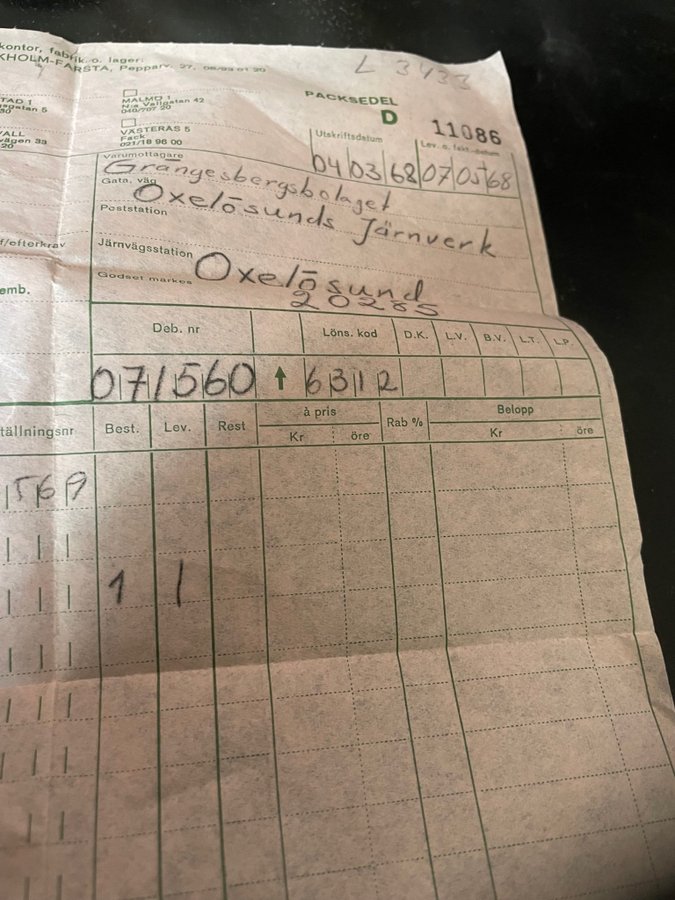 kontor, fabrik o. lager:
KHOLM-FARSTA, Pepparv. 27, 08/93 01 20
L 3433
MALMÖ 1
N:a Vallgatan 42
040/707 20
VÄSTERÅS 5
Fack
021/18 96 00
PACKSEDEL
D
11086
Utskriftsdatum
Lev. o. fakt.-datum
04 03 68 07 05 68
Varumottagare
Grängesbergsbolaget
Gata, väg
Oxelösunds Järnverk
Poststation
Järnvägsstation
Oxelösund
Godset märkes
20285
f/efterkrav
emb.
Deb. nr
Löns. kod
D.K.
L.V.
B.V.
L.T.
L.P.
071560
6312
tällningsnr
Best.
Lev.
Rest
à pris
Kr
öre
Rab %
Belopp
Kr
öre
569
1
1